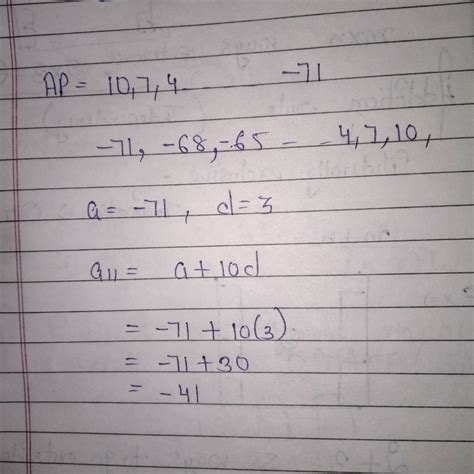 AP = 10, 7, 4 -71
-71, -68, -65 - - 4, 7, 10,
a = -71, d = 3
a11 = a + 10d
= -71 + 10(3)
= -71 + 30
= -41